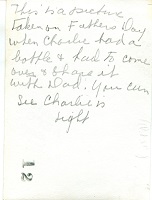 This is a picture
taken on Fathers Day
when Charlie had a
bottle & had to come
over & shape it
with Dad. You can
see Charlie's
right
12